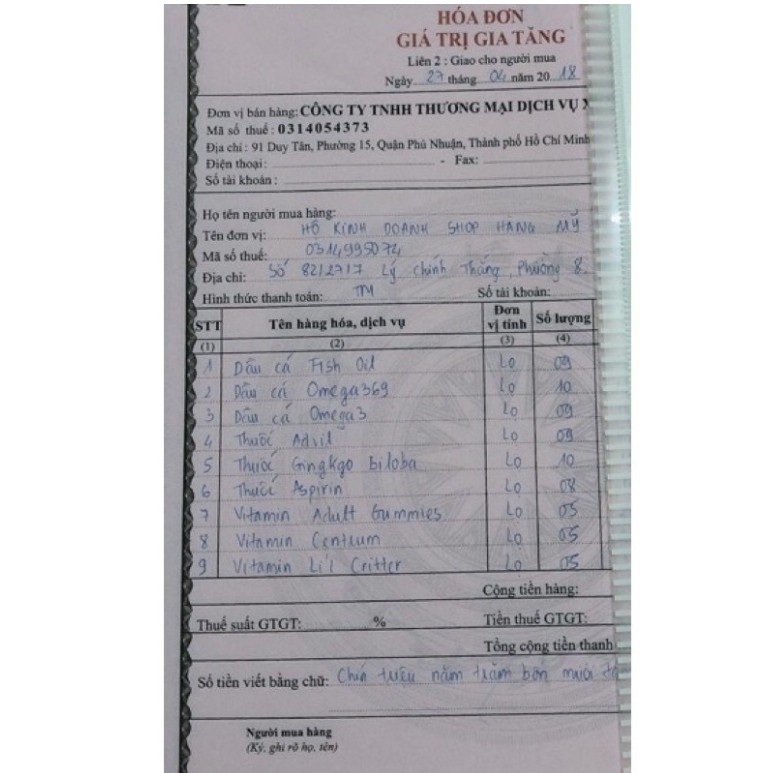 HÓA ĐƠN
GIÁ TRỊ GIA TĂNG
Liên 2 : Giao cho người mua
Ngày 27 tháng 04 năm 20 18
Đơn vị bán hàng: CÔNG TY TNHH THƯƠNG MẠI DỊCH VỤ
Mã số thuế : 0314054373
Địa chỉ : 91 Duy Tân, Phường 15, Quận Phú Nhuận, Thành phố Hồ Chí Minh
Điện thoại: - Fax:
Số tài khoản :
Họ tên người mua hàng:
Tên đơn vị: HỘ KINH DOANH SHOP HÀNG MỸ
Mã số thuế: 0314995074
Địa chỉ: Số 82/2/17 Lý chính Thắng, Phường 8.
Hình thức thanh toán: TM Số tài khoản:
STT Tên hàng hóa, dịch vụ Đơn vị tính Số lượng
(1) (2) (3) (4)
1 Dầu cá Fish Oil Lọ 09
2 Dầu cá Omega369 Lọ 10
3 Dầu cá Omega3 Lọ 09
4 Thuốc Advil Lọ 09
5 Thuốc Gingkgo biloba Lọ 10
6 Thuốc Aspirin Lọ 08
7 Vitamin Adult Gummies Lọ 05
8 Vitamin Centrum Lọ 05
9 Vitamin Li'l Critter Lọ 05
Cộng tiền hàng:
Thuế suất GTGT: % Tiền thuế GTGT:
Tổng cộng tiền thanh
Số tiền viết bằng chữ: Chín triệu năm trăm bốn mươi
Người mua hàng
(Ký, ghi rõ họ, tên)